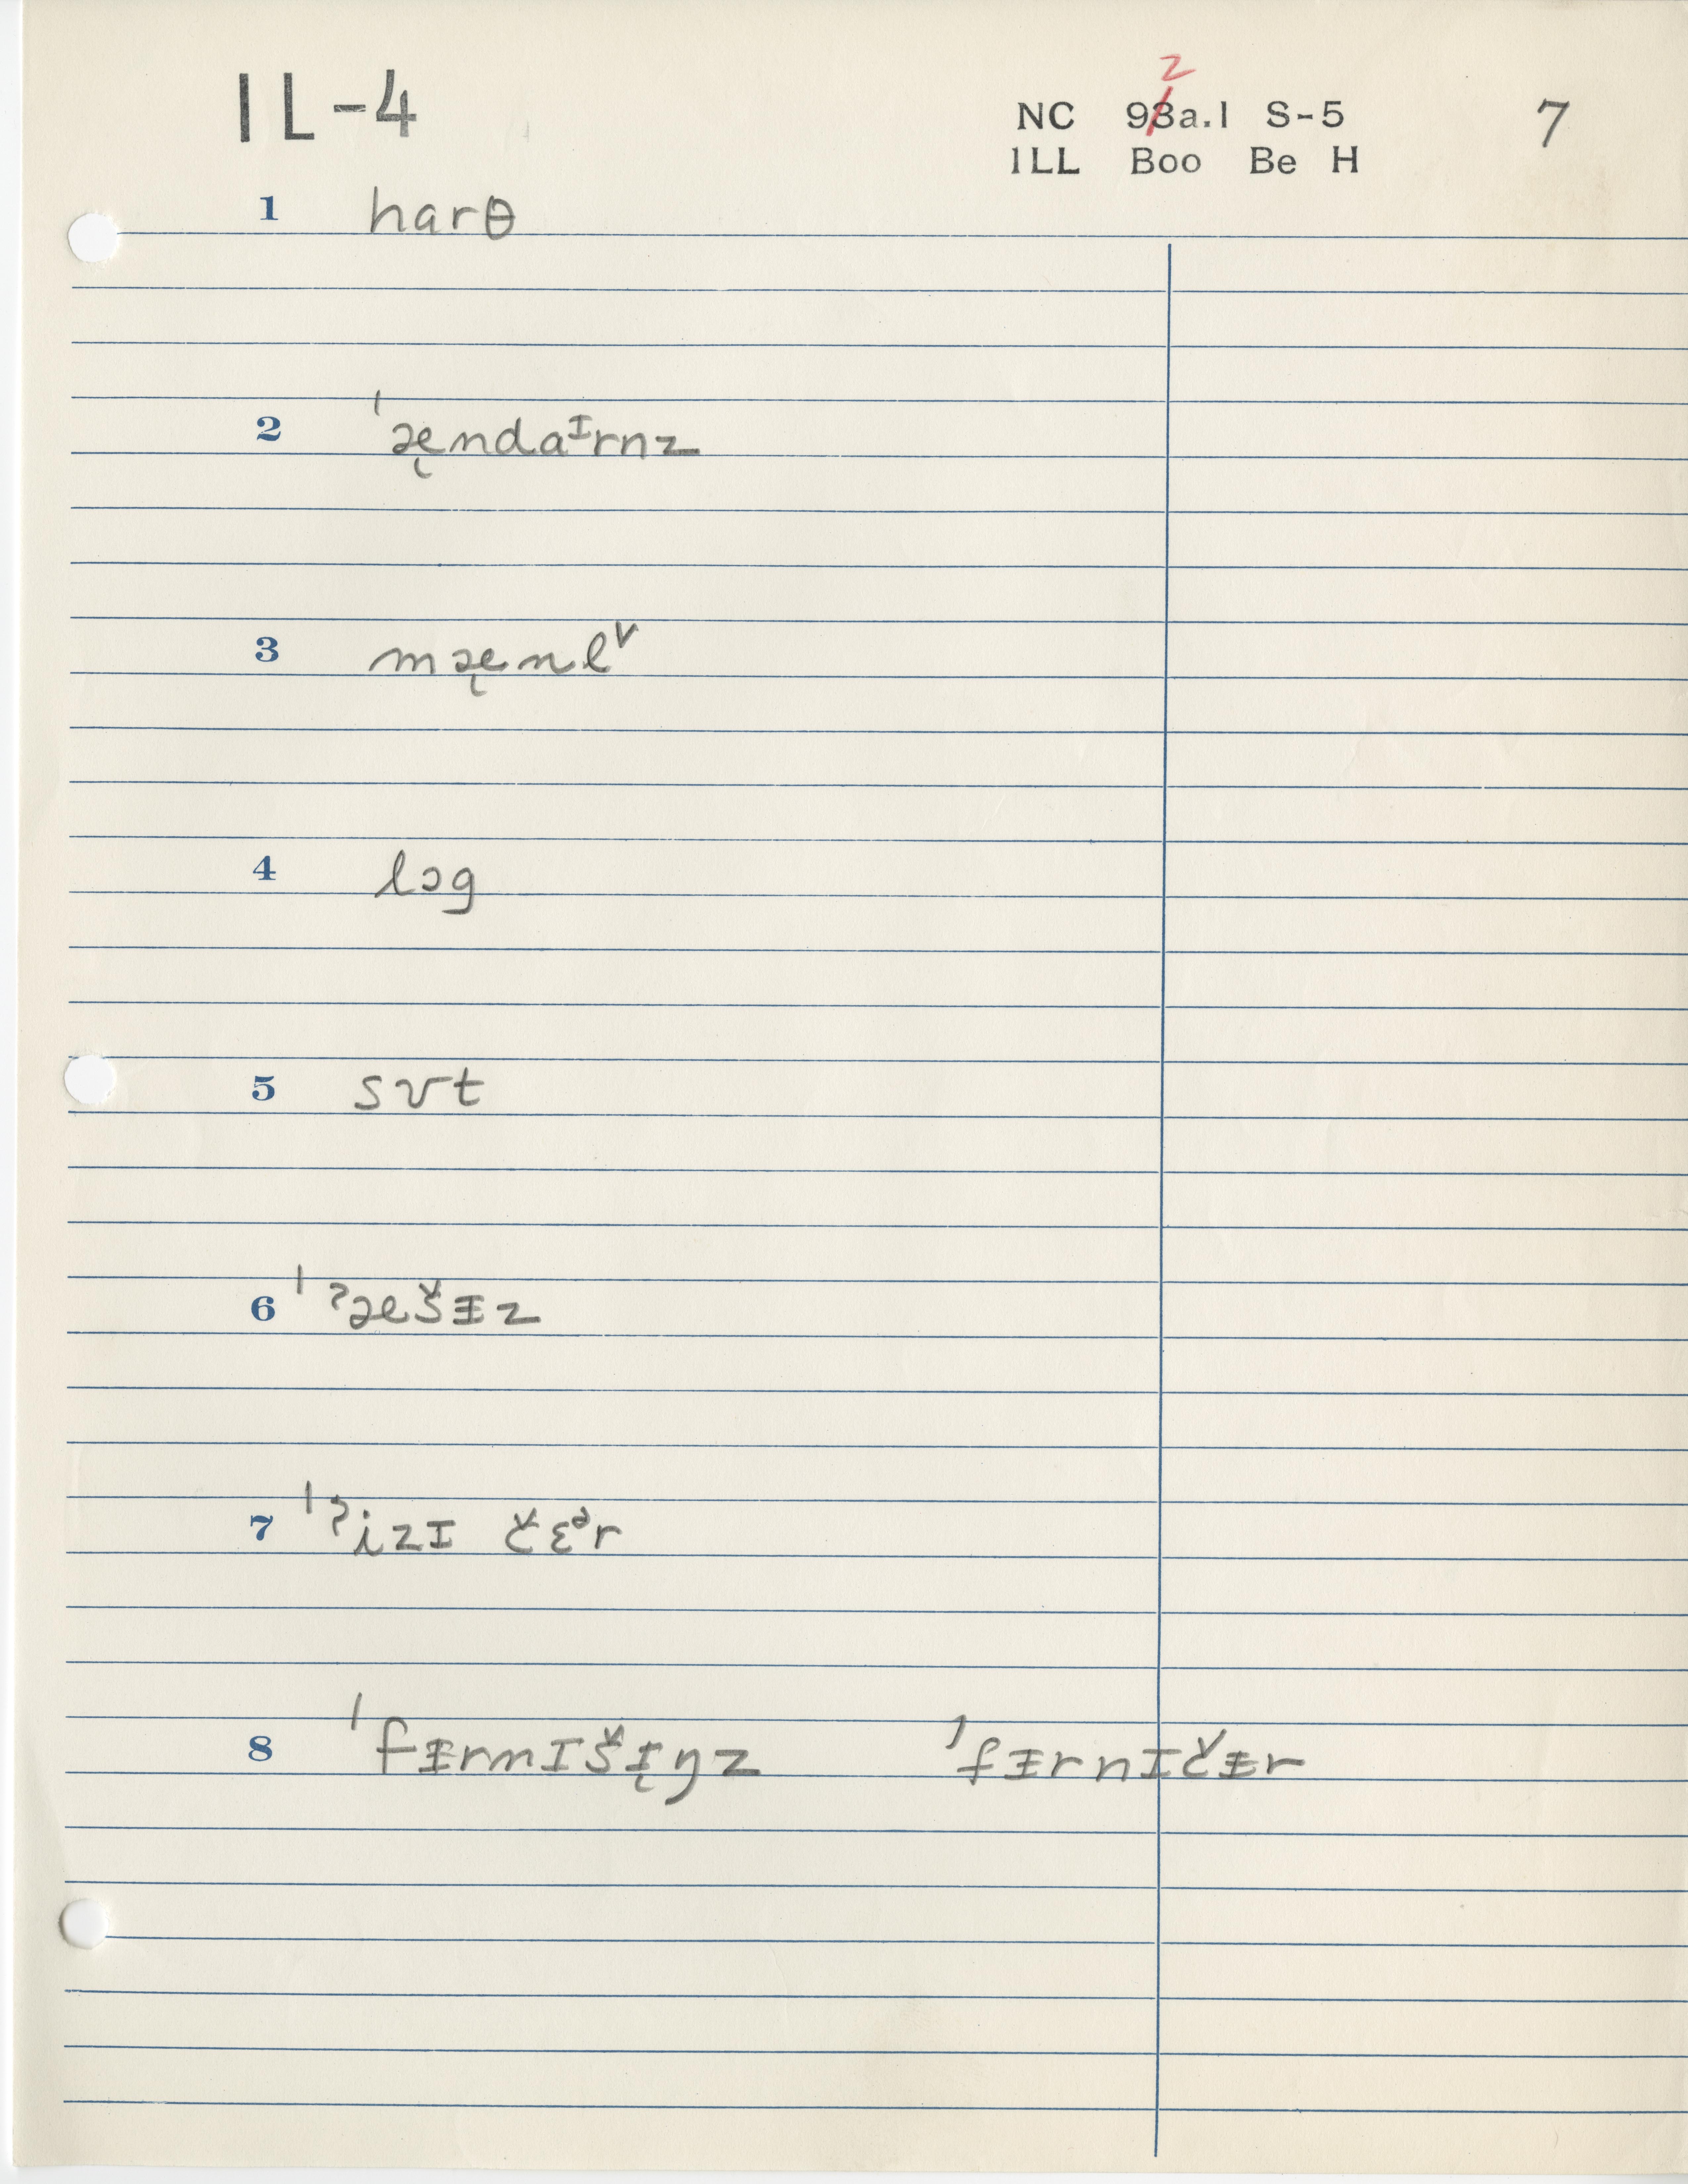 IL-4
2
NC 93a.1 S-5 7
ILL Boo Be H
1 harθ
2 ˈæ̨ndaᶦrnz
3 mæ̨nlᵛ
4 lɔg
5 sʊt
6 ˈˀæšɨz
7 ˈˀizɪ čɛᵊr
8 ˈfɨrnɪšɪ̨ŋz ˈfɨrnɪčɨr